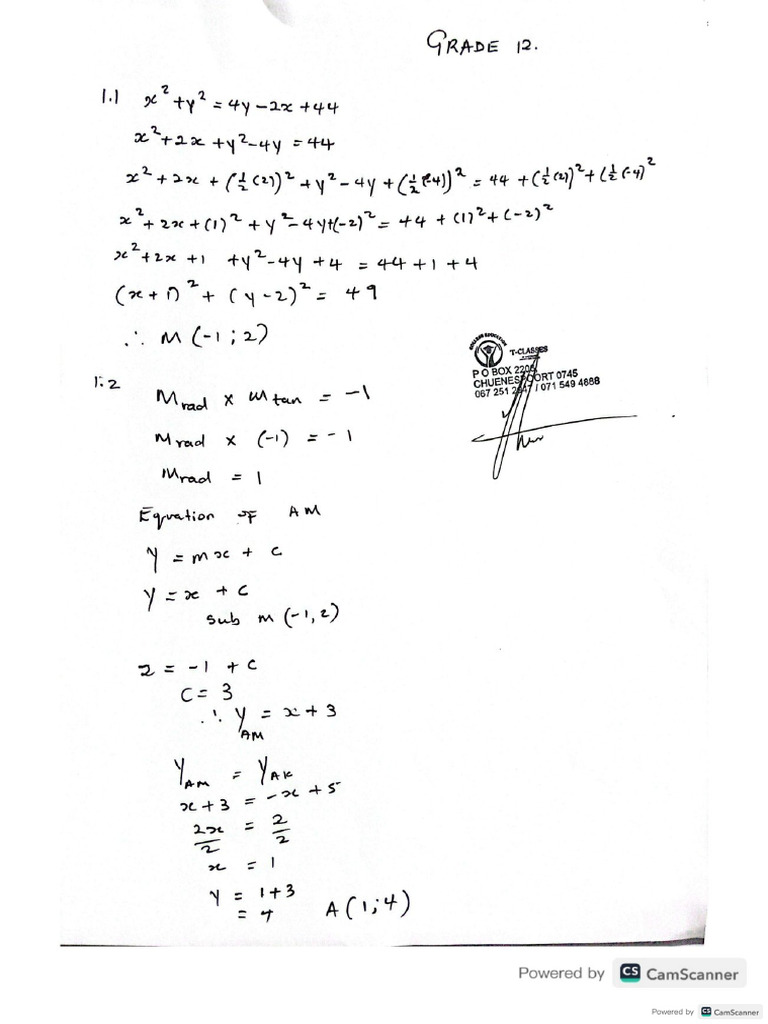 GRADE 12.
1.1 x² + y² = 4y - 2x + 44
x² + 2x + y² - 4y = 44
x² + 2x + (½(2))² + y² - 4y + (½(-4))² = 44 + (½(2))² + (½(-4)²
x² + 2x + (1)² + y² - 4y + (-2)² = 44 + (1)² + (-2)²
x² + 2x + 1 + y² - 4y + 4 = 44 + 1 + 4
(x + 1)² + (y - 2)² = 49
∴ M (-1 ; 2)
COLLEGE EDUCATION
T-CLASSES
P O BOX 2205
CHUENESPOORT 0745
067 251 / 071 549 4888
1.2 Mrad x Mtan = -1
Mrad x (-1) = -1
Mrad = 1
Equation of AM
y = mx + c
y = x + c
sub m (-1, 2)
2 = -1 + c
c = 3
∴ y = x + 3
AM
yAM = yAK
x + 3 = -x + 5
2x/2 = 2/2
x = 1
y = 1 + 3
= 4 A (1 ; 4)
Powered by CS CamScanner
Powered by CS CamScanner